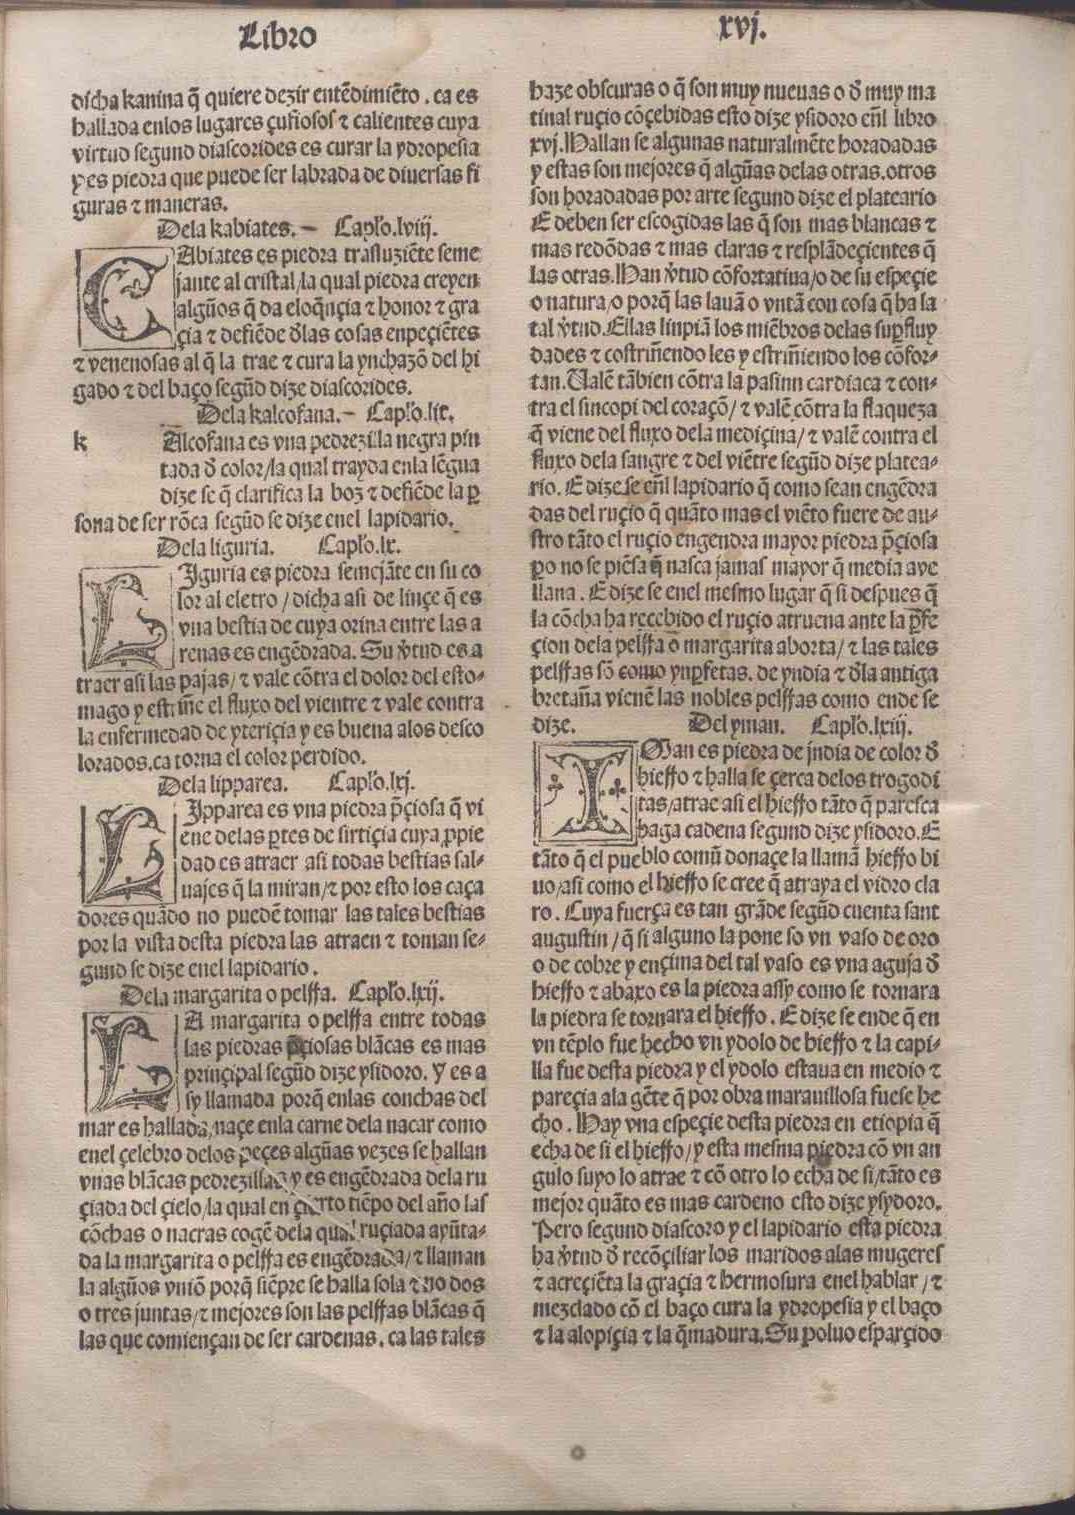 Libro
xvj.
dicha kanina q̃ quiere dezir entẽdimiẽto. ca es
hallada enlos lugares çufiosos ⁊ calientes cuya
virtud segund diascorides es curar la ydropesia
y es piedra que puede ser labrada de diuersas fi
guras ⁊ maneras.
Dela kabiates. — Capło.lviij.
CAbiates es piedra trasluziẽte seme
jante al cristal/la qual piedra creyen
algũos q̃ da eloq̃nçia ⁊ honor ⁊ gra
çia ⁊ defiẽde d̃las cosas enpeçiẽtes
⁊ venenosas al q̃ la trae ⁊ cura la ynchazõ del hi
gado ⁊ del baço segũd dize diascorides.
Dela kalcofana. — Capło.lix.
k Alcofana es vna pedrezilla negra pin
tada d̃ color/la qual trayda enla lẽgua
dize se q̃ clarifica la boz ⁊ defiẽde la ꝑ
sona de ser rõca segũd se dize enel lapidario.
Dela liguria. Capło.lx.
LIguria es piedra semejãte en su co
lor al eletro/dicha asi de linçe q̃ es
vna bestia de cuya orina entre las a
renas es engẽdrada. Su v̓tud es a
traer asi las pajas/⁊ vale cõtra el dolor del esto-
mago y estriñe el fluxo del vientre ⁊ vale contra
la enfermedad de yteriçia y es buena alos desco
lorados.ca torna el color perdido.
Dela lipparea. Capło.lxj.
LIpparea es vna piedra p̃çiosa q̃ vi
ene delas ꝑtes de sirtiçia cuya ꝓpie
dad es atraer asi todas bestias sal-
uajes q̃ la miran/⁊ por esto los caça
dores quãdo no puedẽ tomar las tales bestias
por la vista desta piedra las atraen ⁊ toman se-
gund se dize enel lapidario.
Dela margarita o pelssa. Capło.lxij.
LA margarita o pelssa entre todas
las piedras p̃çiosas blãcas es mas
prinçipal segũd dize ysidoro. Y es a
sy llamada porq̃ enlas conchas del
mar es hallada/naçe enla carne dela nacar como
enel çelebro delos peçes algũas vezes se hallan
vnas blãcas pedrezillas/y es engẽdrada dela ru
çiada del çielo/la qual en çierto tiẽpo del año las
cõchas o nacras cogẽ dela qual ruçiada ayũta-
da la margarita o pelssa es engẽdrada/⁊ llaman
la algũos vniõ porq̃ siẽpre se halla sola ⁊ no dos
o tres juntas/⁊ mejores son las pelssas blãcas q̃
las que comiençan de ser cardenas. ca las tales
haze obscuras o q̃ son muy nueuas o d̃ muy ma
tinal ruçio cõçebidas esto dize ysidoro eñl libro
xvj. Hallan se algunas naturalmẽte horadadas
y estas son mejores q̃ algũas delas otras.otros
son horadadas por arte segund dize el plateario
E deben ser escogidas las q̃ son mas blancas ⁊
mas redõdas ⁊ mas claras ⁊ resplãdeçientes q̃
las otras. Han v̓tud cõfortatiua/o de su espeçie
o natura/o porq̃ las lauã o vntã con cosa q̃ ha la
tal v̓tud. Ellas linpiã los miẽbros delas suꝑfluy
dades ⁊ costriñendo les y estriñiendo los cõfor-
tan. Ualẽ tãbien cõtra la pasinn cardiaca ⁊ con-
tra el sincopi del coraçõ/⁊ valẽ cõtra la flaqueza
q̃ viene del fluxo dela mediçina/⁊ valẽ contra el
fluxo dela sangre ⁊ del viẽtre segũd dize platea-
rio. E dize se eñl lapidario q̃ como sean engẽdra
das del ruçio q̃ quãto mas el viẽto fuere de au-
stro tãto el ruçio engendra mayor piedra p̃çiosa
ꝑo no se piẽsa q̃ nasca jamas mayor q̃ media aue
llana. E dize se enel mesmo lugar q̃ si despues q̃
la cõcha ha recebido el ruçio atruena ante la ꝑfe
çion dela pelssa o margarita aborta/⁊ las tales
pelssas sõ como ynꝑfetas. de yndia ⁊ d̃la antiga
bretaña vienẽ las nobles pelssas como ende se
dize. Del yman. Capło.lxiij.
IMan es piedra de jndia de color d̃
hiesso ⁊ halla se çerca delos trogodi
tas/atrae asi el hiesso tãto q̃ paresca
haga cadena segund dize ysidoro. E
tãto q̃ el pueblo comũ donaçe la llamã hiesso bi
uo/asi como el hiesso se cree q̃ atraya el vidro cla
ro. Cuya fuerça es tan grãde segũd cuenta sant
augustin/q̃ si alguno la pone so vn vaso de oro
o de cobre y ençima del tal vaso es vna aguja d̃
hiesso ⁊ abaxo es la piedra assy como se tornara
la piedra se tornara el hiesso. E dize se ende q̃ en
vn tẽplo fue hecho vn ydolo de hiesso ⁊ la capi-
lla fue desta piedra y el ydolo estaua en medio ⁊
pareçia ala gẽte q̃ por obra marauillosa fuese he
cho. Hay vna espeçie desta piedra en etiopia q̃
echa de si el hiesso/y esta mesma piedra cõ vn an
gulo suyo lo atrae ⁊ cõ otro lo echa de si/tãto es
mejor quãto es mas cardeno esto dize ysydoro.
Pero segund diascoro y el lapidario esta piedra
ha v̓tud d̃ recõçiliar los maridos alas mugeres
⁊ acreçiẽta la graçia ⁊ hermosura enel hablar/⁊
mezclado cõ el baço cura la ydropesia y el baço
⁊ la alopiçia ⁊ la q̃madura. Su poluo esparçido